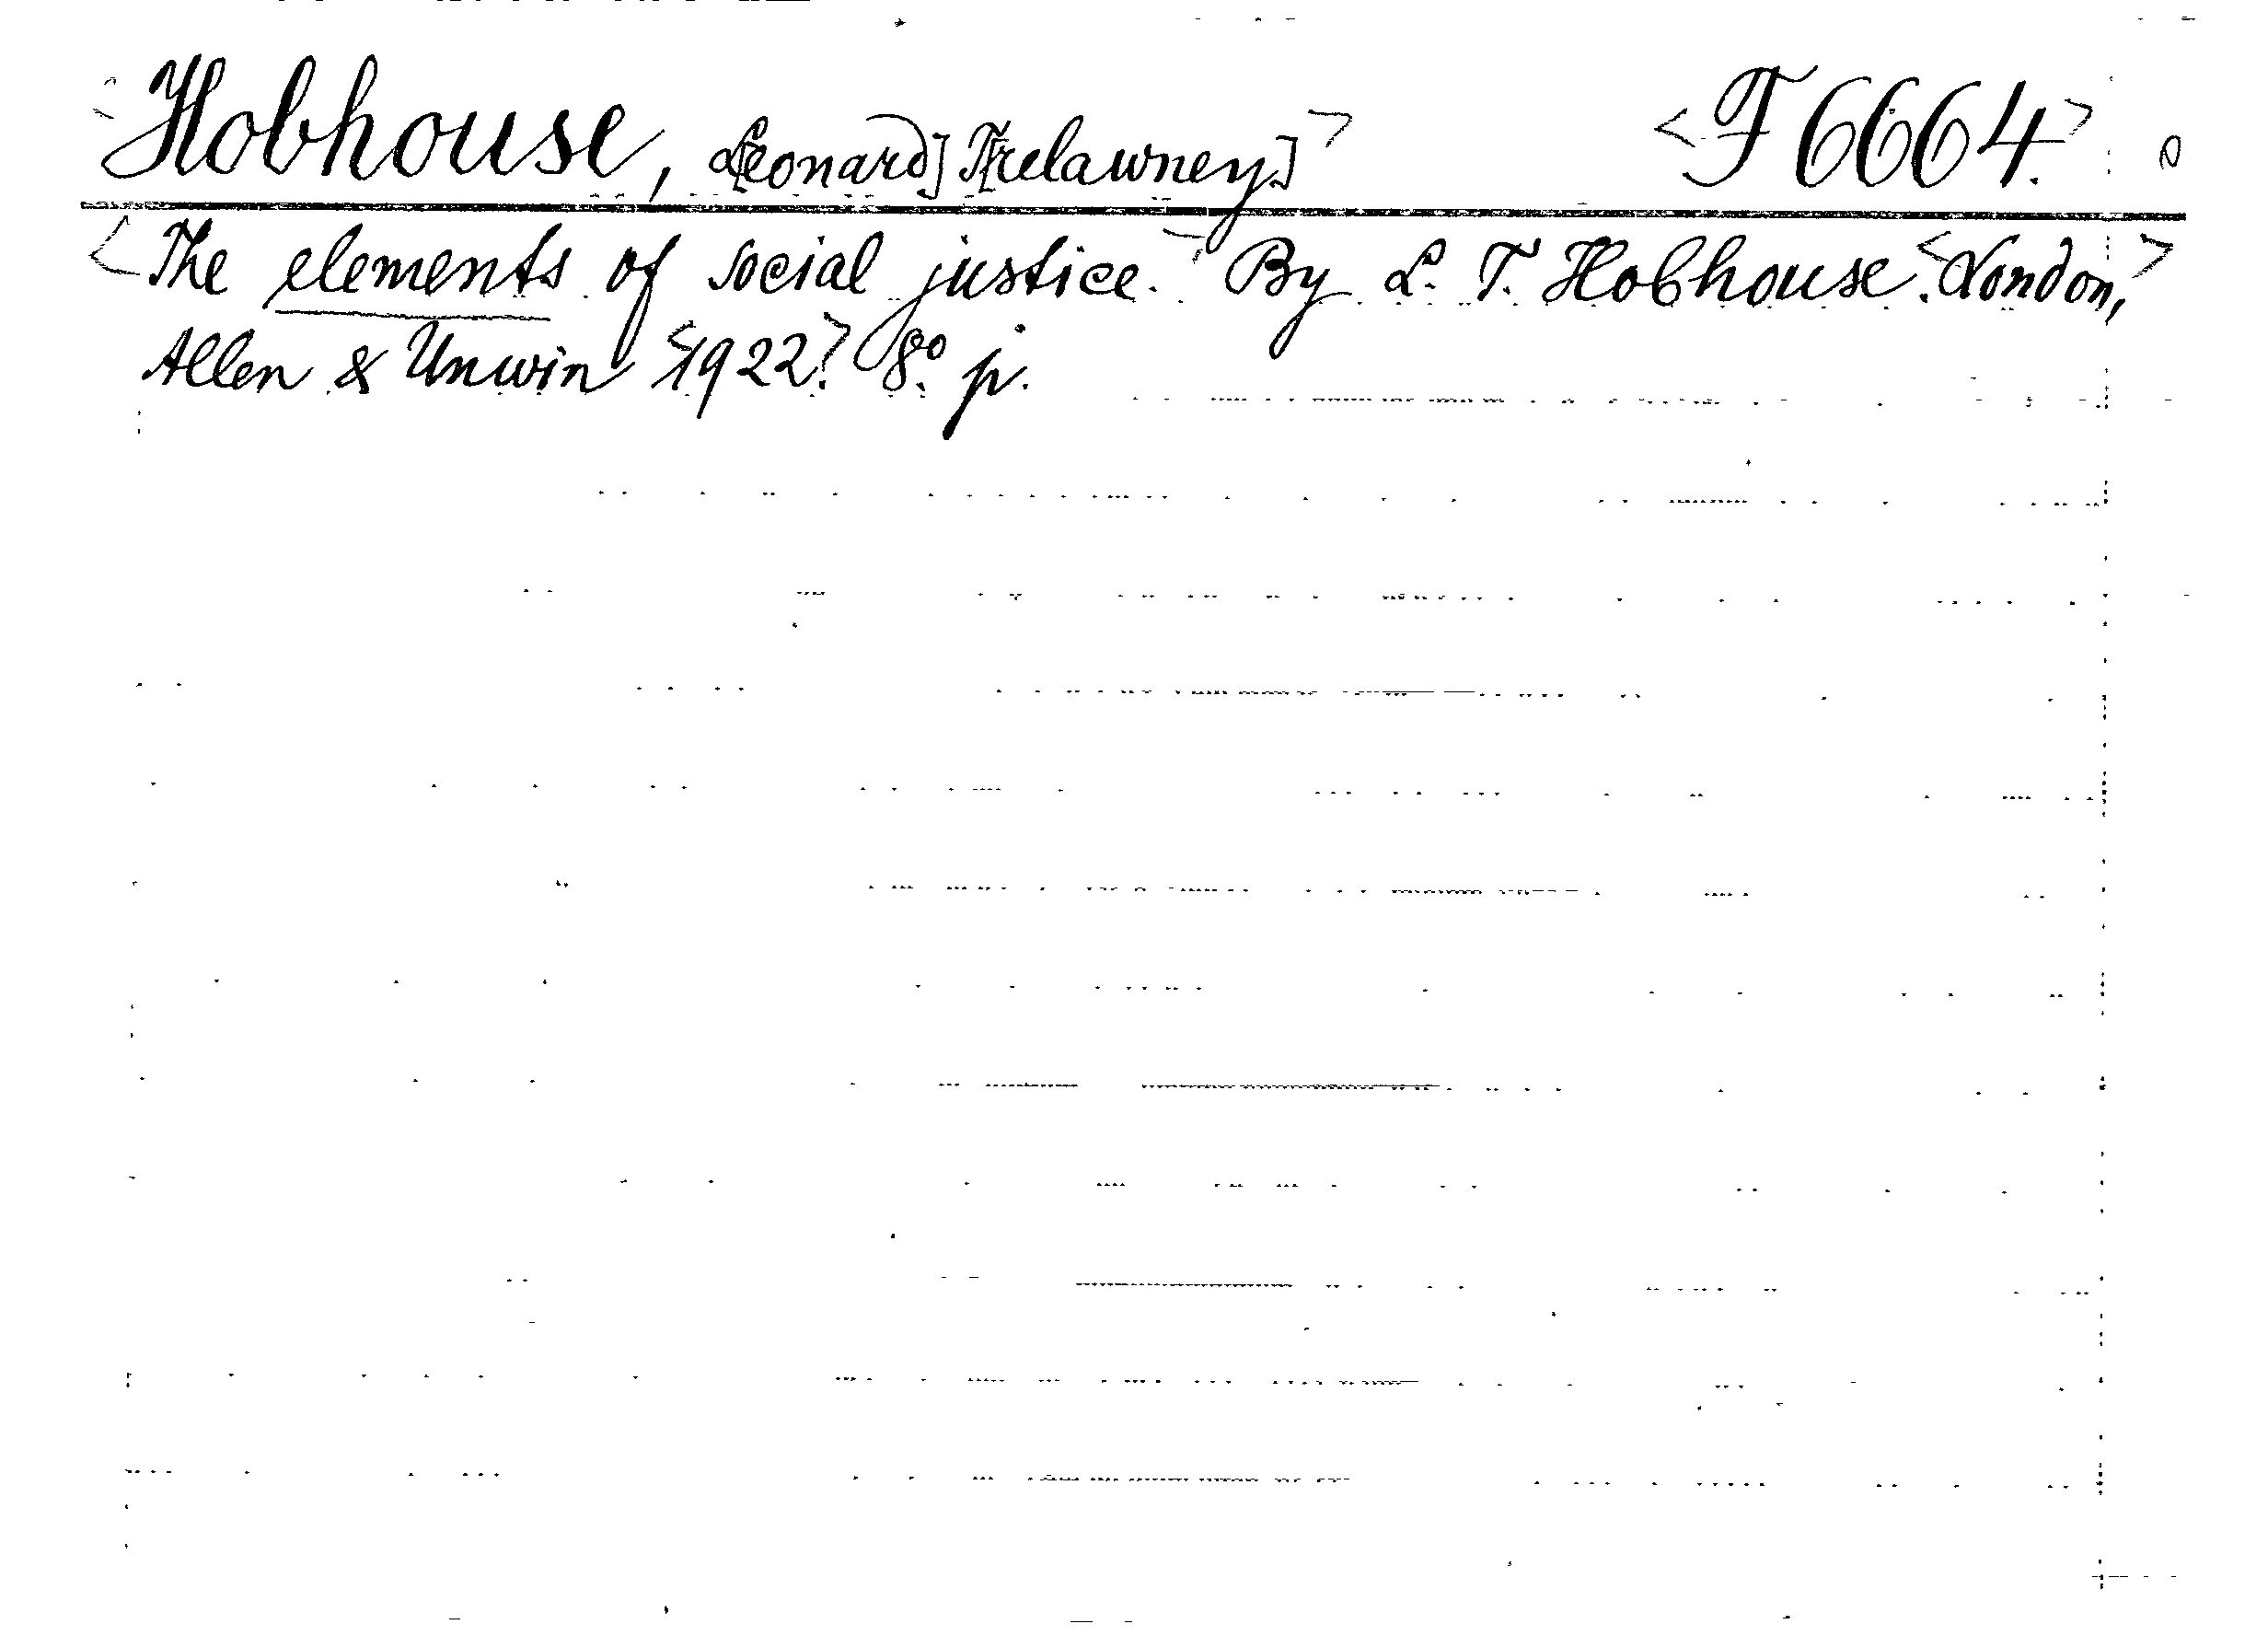 <Hobhouse, L[eonard] T[relawney]> <F 6664.>
<The elements of social justice.> By L. T. Hobhouse. <London,>
Allen & Unwin <1922.> 8º. p.